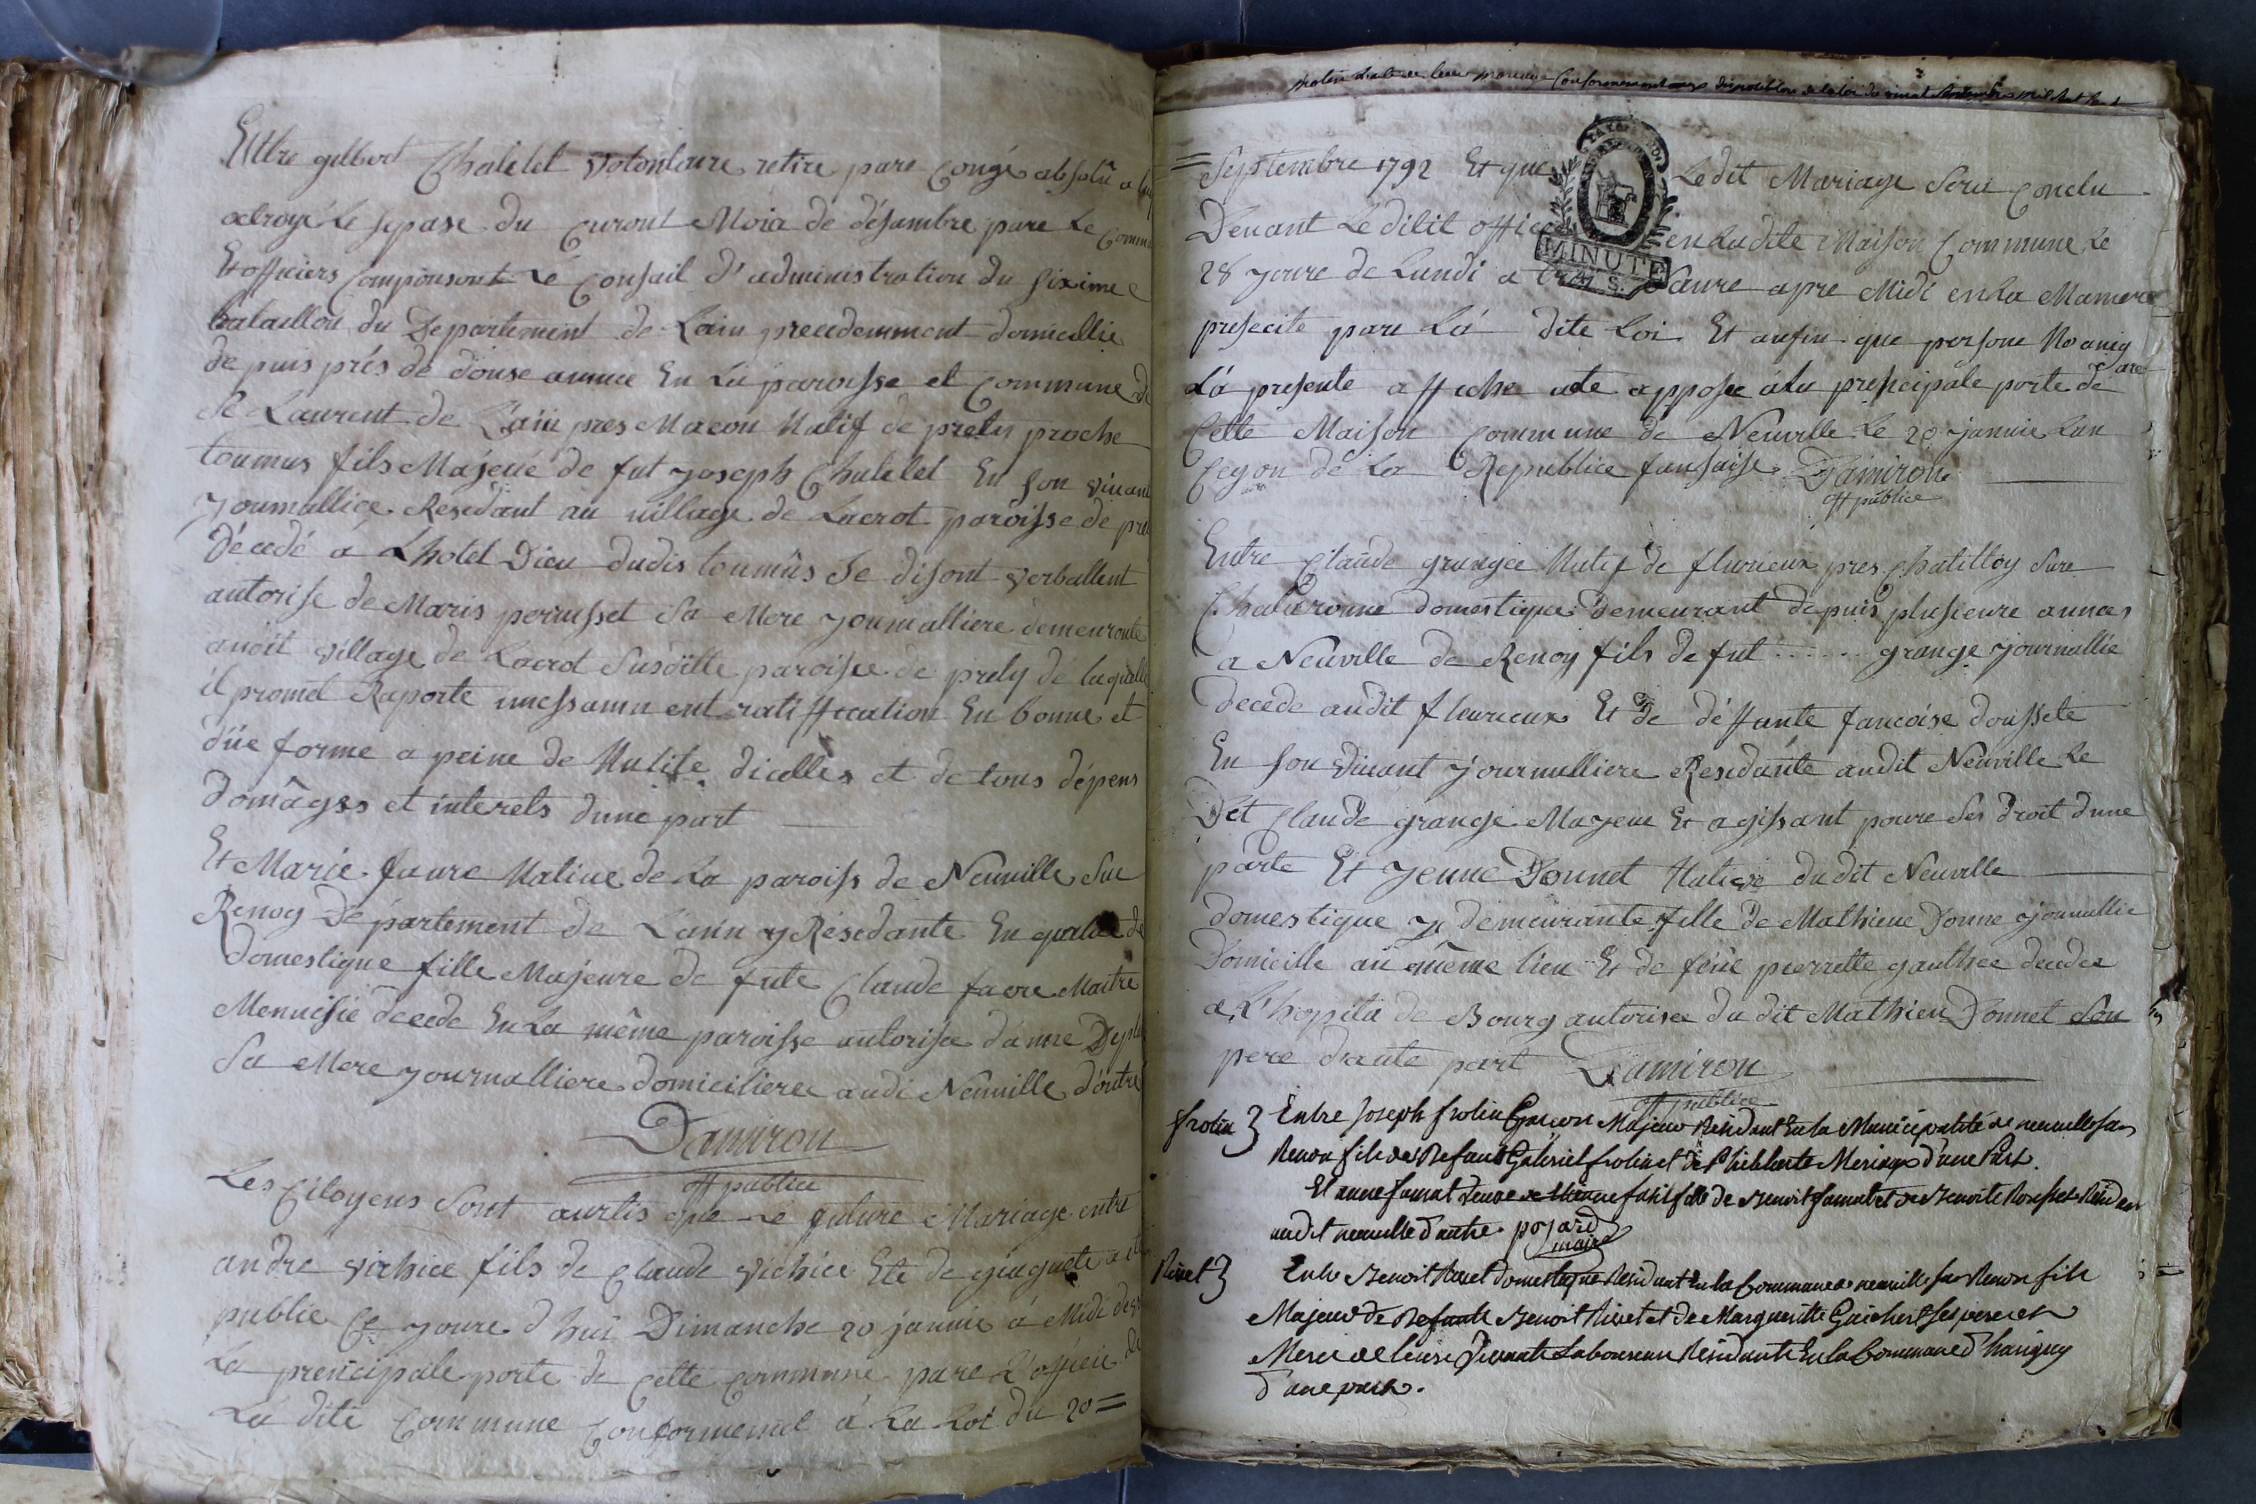 Entre gilbert Chatelet volontaire retire pare Congé absolû a luy
octroyé le sepase du Curont Moia de désambre pare le Comm
Et officiers Componsont le Consail d'administration du sixime
bataillon du Departement de Lain precedemment domicillie
de puis prés de douse annee En La paroisse et Commune de
St Laurent de L'ain pres Macon Natif de prety proche
tournus fils Majeue de fut joseph Chatelet En son vivant
journallice Résidant au village de Lacrot paroisse de pre
Décedé a Lhotel Dieu dudis tournûs Se disont verballent
autorise de Maris perrusset Sa Mere journalliere demeuronte
audit village de Lacrot Susditte paroisse de prety de laquelle
il promet Raporte ratiffication En bonne et
dûe forme a peine de Nulite dicelles et de tous dépens
domâges et interets dune part
Et Marie faure Native de La paroiss de Neuville Sue
Renoy Département de Lain y Résidante En qualite de
domestique fille Majeure de fute Claude favre Maitre
Menuisie decede En La même paroisse autorisee d'anne
Sa Mere journalliere domiciliere audi Neuville d'outre
Damiron
off publice
Les Citoyens Sont avrtis que Le future Mariage entre
andre vichice fils de Claude vichice Ete de
publie Ce joure d hui Dimanche 20 janvie à Midi
La prencipale porte de Cette Commune pare L'oficie de
La dite Commune Conformemet á La Loi du 20 =
Conformement aux dispositions de la loi du vingt Septembre mil Sept
= Septembre 1792 Et que Ledit Mariage Sera Conclu
Devant Le dilit office en Ladite Maison Commune Le
MINUTE
28 joure de Lundi a haure apre Midi en La Manere
presecite pare Lá dite Loi Et anfin que persone No anig
are
Lá presente affiche ate apposee á La prencipale porte de
Cette Maison Commune de Neuville Le 20 janvie Lan
Cegon dé La Republice fansaise Damiron
off publice
Entre Claude grangee Natif de flurieux pres Chatilloy Sure
Chalaronne domestique demeurant depuis plusieure annees
à Neuville de Renoy fils de fut ...... grange journallie
Decede audit fleurieux Et de déffunte fancoise dousséte
En Son vivant journalliere Residante audit Neuville Le
Det Claude grange Mayeue Et agissant poure Ses Droit dune
parte Et Jenne Donnet Native dudit Neuville
domestique y demeurante fille de Mathieue Donne journallie
Domicille au même lieu Et de féue pierrette gauthee decedee
a L'hopita de Bourg autorisee du dit Mathieu Donnet Son
pere d'aute part Damiron
off publice
frolin } Entre Joseph frolin Garcon Majeur Résidant En la Municipalité de neuville sur
Renon fils de Defunt Gabriel frolin et de Philiberte d'une Part.
Et anne Jamat veuve de fille de Benoit Jamat et de Benoite Résidan
audit neuville d'autre pojard
maire
Rivet } Entre Benoit Rivet domestique Résidant En la Commune de neuville sur Renon fils
Majeur de Defunte Benoit Rivet et de Marguerite Guichert Ses pere et
Mere Résidante En la Commune d'
d'une part.